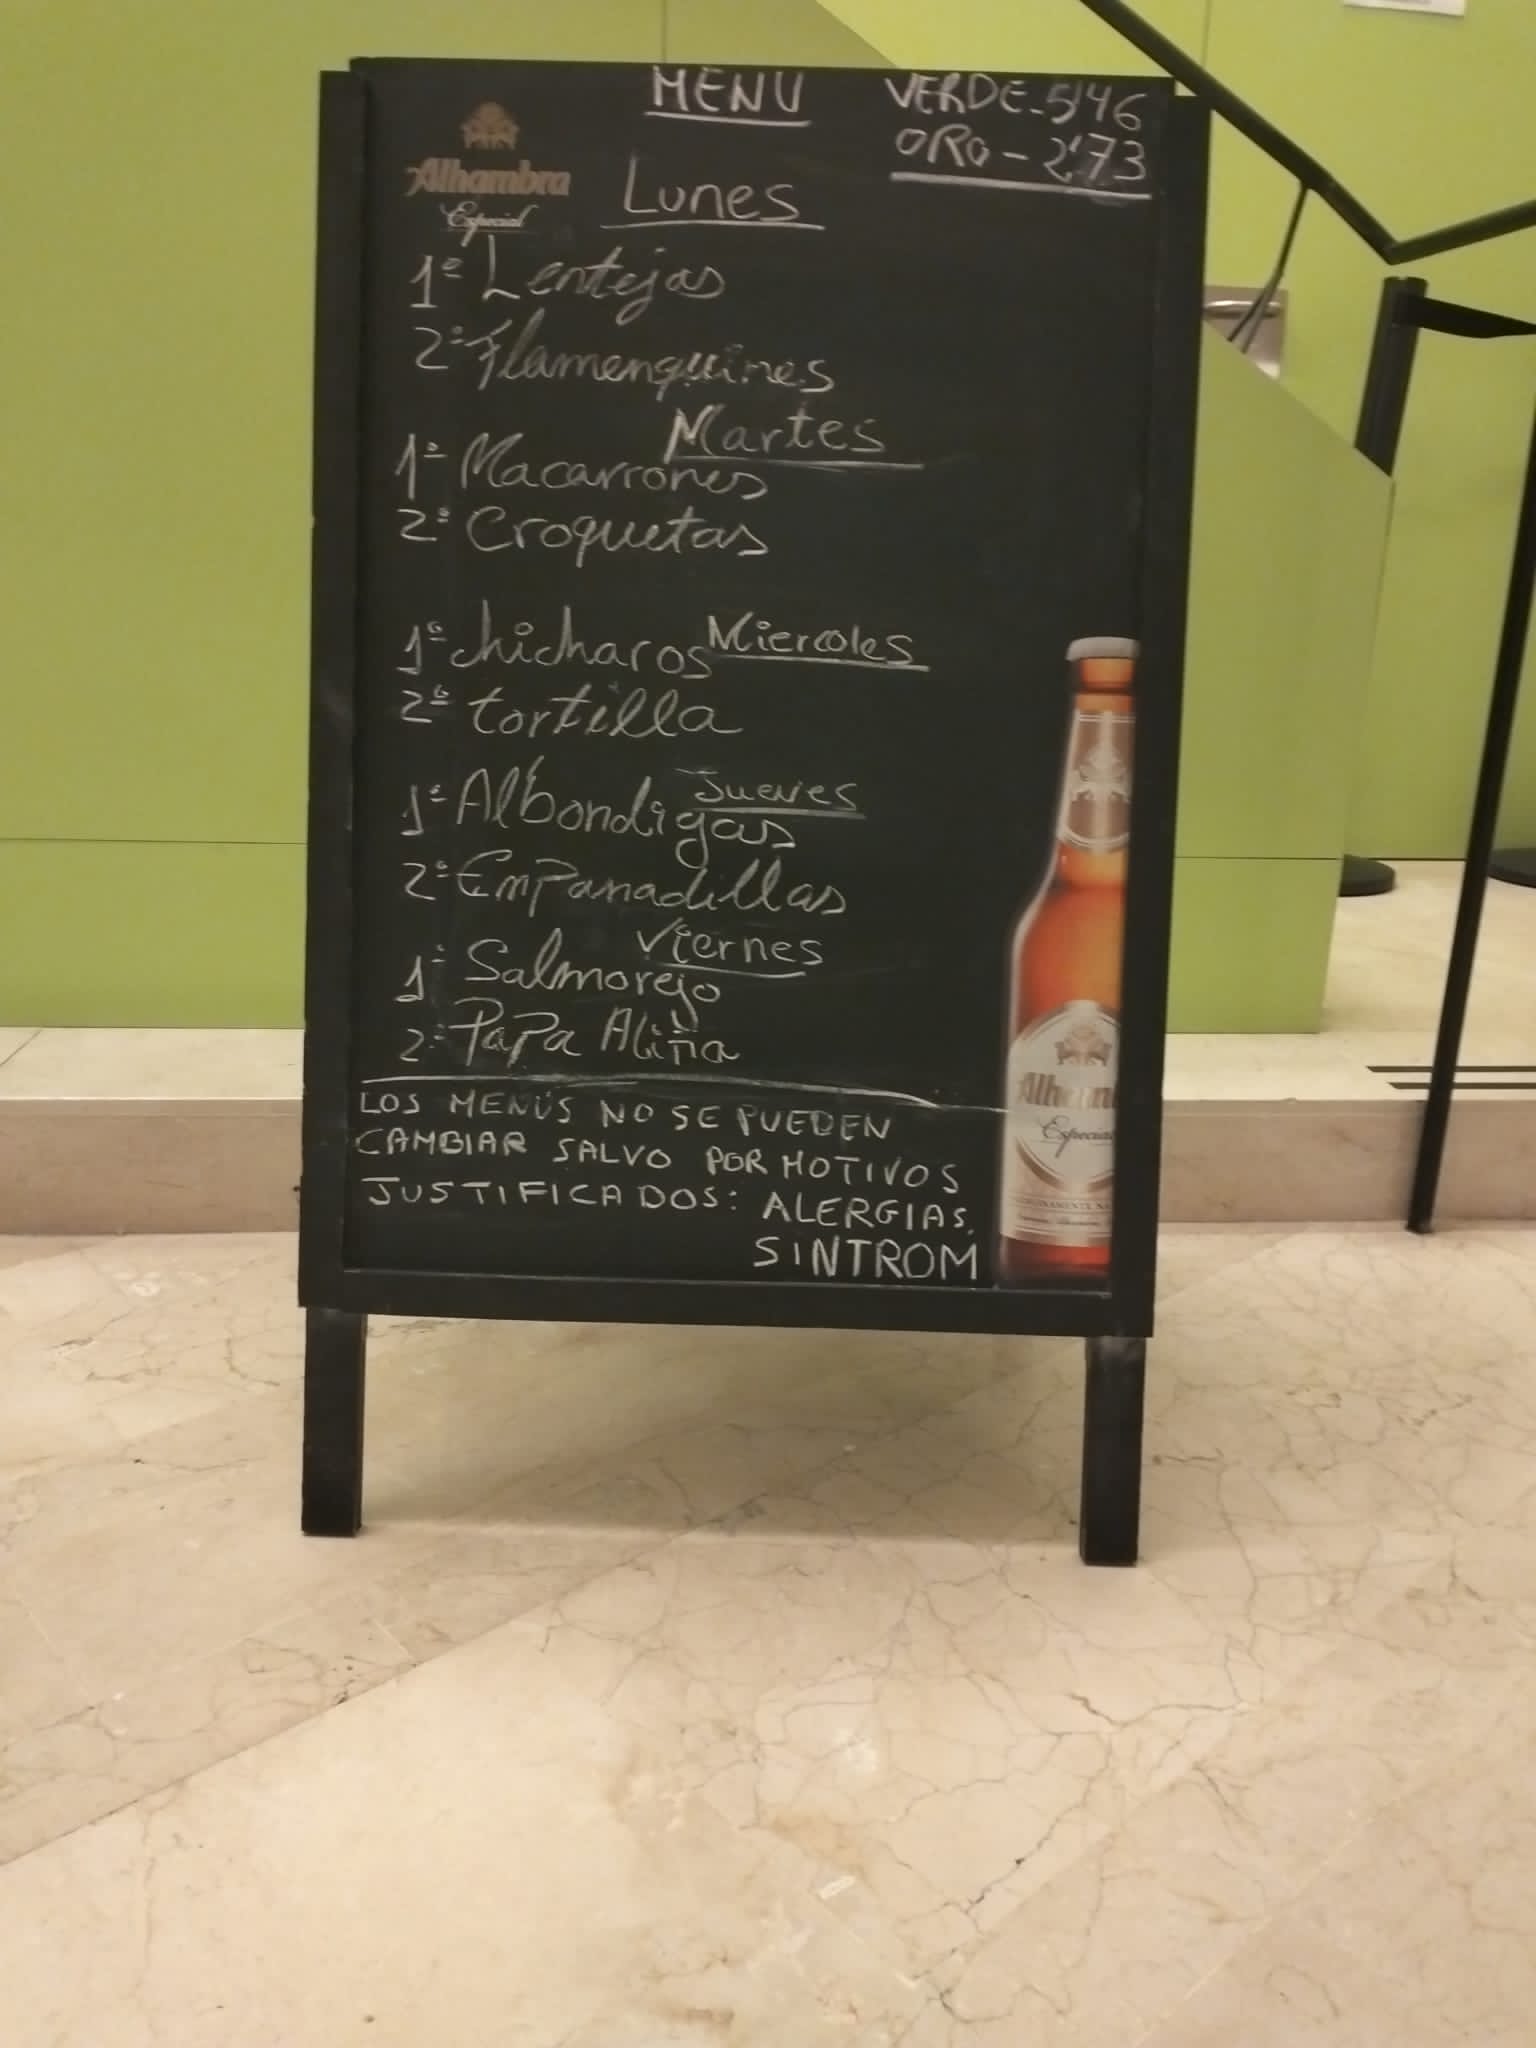 MENU
VERDE-5'46
ORO-2'73
Alhambra
Especial
Lunes
1º Lentejas
2º Flamenquines
Martes
1º Macarrones
2º Croquetas
Miercoles
1º chicharos
2º tortilla
Jueves
1º Albondigas
2º Empanadillas
Viernes
1º Salmorejo
2º Papa Aliña
LOS MENÚS NO SE PUEDEN
CAMBIAR SALVO POR MOTIVOS
JUSTIFICADOS: ALERGIAS,
SINTROM
Especial